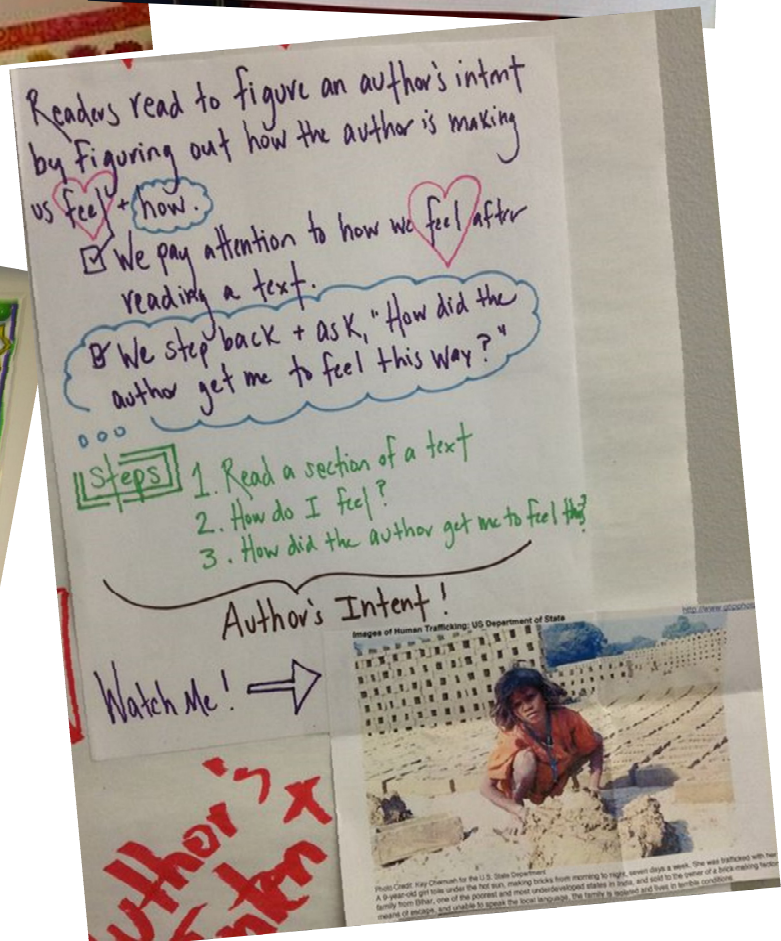 Readers read to figure an author's intent
by figuring out how the author is making
us feel + how.
We pay attention to how we feel after
reading a text.
We step back + ask, "How did the
author get me to feel this way?"
Steps
1. Read a section of a text
2. How do I feel?
3. How did the author get me to feel this?
Author's Intent!
Watch Me!
http://www.
Images of Human Trafficking: US Department of State
Photo Credit: Kay Chernush for the U.S. State Department
A 9-year-old girl toils under the hot sun, making bricks from morning to night, seven days a week. She was trafficked with her
family from Bihar, one of the poorest and most underdeveloped states in India, and sold to the owner of a brick-making factory
means of escape, and unable to speak the local language, the family is isolated and lives in terrible conditions.
Author's